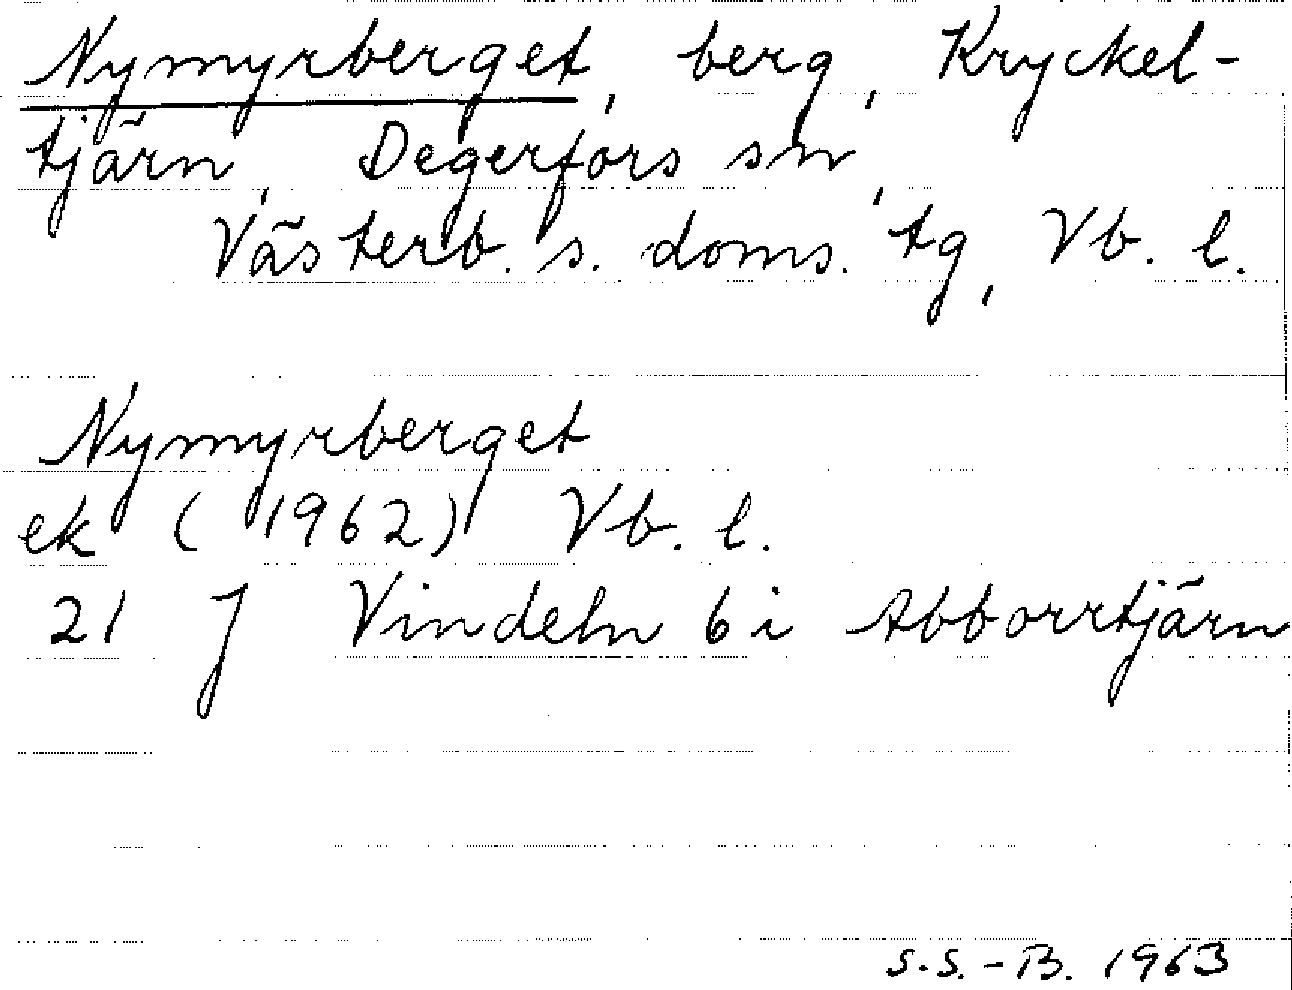 Nymyrberget, berg, Kryckel-
tjärn, Degerfors sn,
Västerb. s. doms. tg, Vb. l.
Nymyrberget
ek (1962) Vb. l.
21 J Vindeln 6 i Abborrtjärn
S.S.-B. 1963